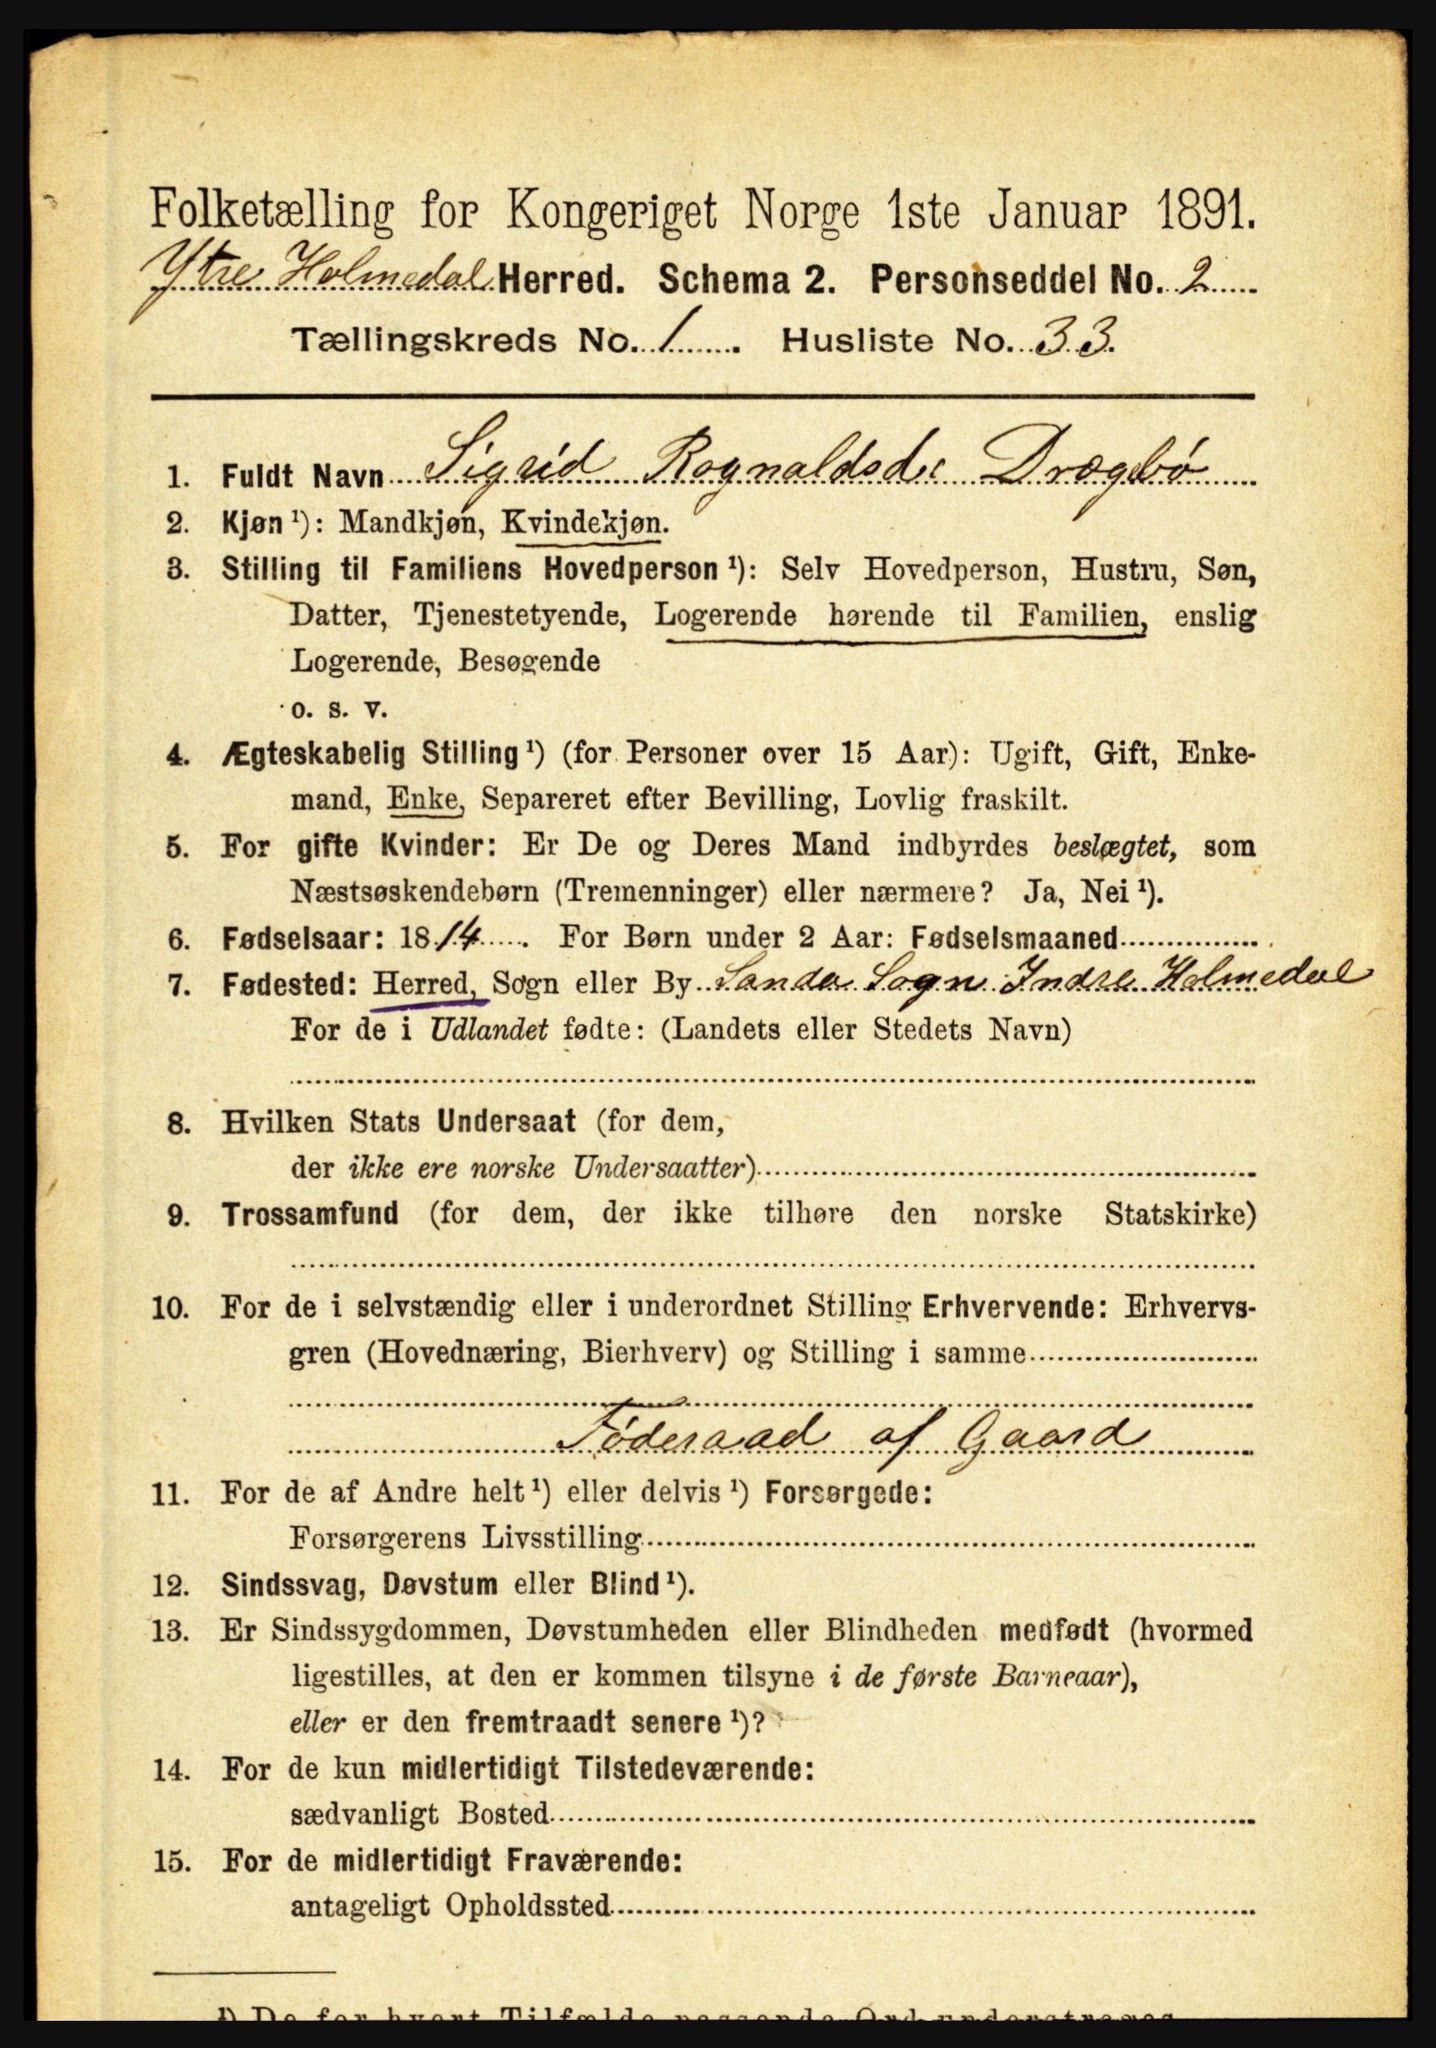 Folketælling for Kongeriget Norge 1ste Januar 1891.
Ytre Holmedal Herred. Schema 2. Personseddel No. 2
Tællingskreds No. 1. Husliste No. 33.
1. Fuldt Navn Sigrid Rognaldsdr Drægebö
2. Kjøn ¹): Mandkjøn, Kvindekjøn.
3. Stilling til Familiens Hovedperson ¹): Selv Hovedperson, Hustru, Søn,
Datter, Tjenestetyende, Logerende hørende til Familien, enslig
Logerende, Besøgende
o. s. v.
4. Ægteskabelig Stilling ¹) (for Personer over 15 Aar): Ugift, Gift, Enke-
mand, Enke, Separeret efter Bevilling, Lovlig fraskilt.
5. For gifte Kvinder: Er De og Deres Mand indbyrdes beslægtet, som
Næstsøskendebørn (Tremenninger) eller nærmere? Ja, Nei ¹).
6. Fødselsaar: 1814. For Børn under 2 Aar: Fødselsmaaned
7. Fødested: Herred, Sogn eller By Sande Sogn Indre Holmedal
For de i Udlandet fødte: (Landets eller Stedets Navn)
8. Hvilken Stats Undersaat (for dem,
der ikke ere norske Undersaatter)
9. Trossamfund (for dem, der ikke tilhøre den norske Statskirke)
10. For de i selvstændig eller i underordnet Stilling Erhvervende: Erhvervs-
gren (Hovednæring, Bierhverv) og Stilling i samme
Föderaad af Gaard
11. For de af Andre helt ¹) eller delvis ¹) Forsørgede:
Forsørgerens Livsstilling
12. Sindssvag, Døvstum eller Blind ¹).
13. Er Sindssygdommen, Døvstumheden eller Blindheden medfødt (hvormed
ligestilles, at den er kommen tilsyne i de første Barneaar),
eller er den fremtraadt senere ¹)?
14. For de kun midlertidigt Tilstedeværende:
sædvanligt Bosted
15. For de midlertidigt Fraværende:
antageligt Opholdssted
¹) De for hvert Tilfælde passende Ord understreges